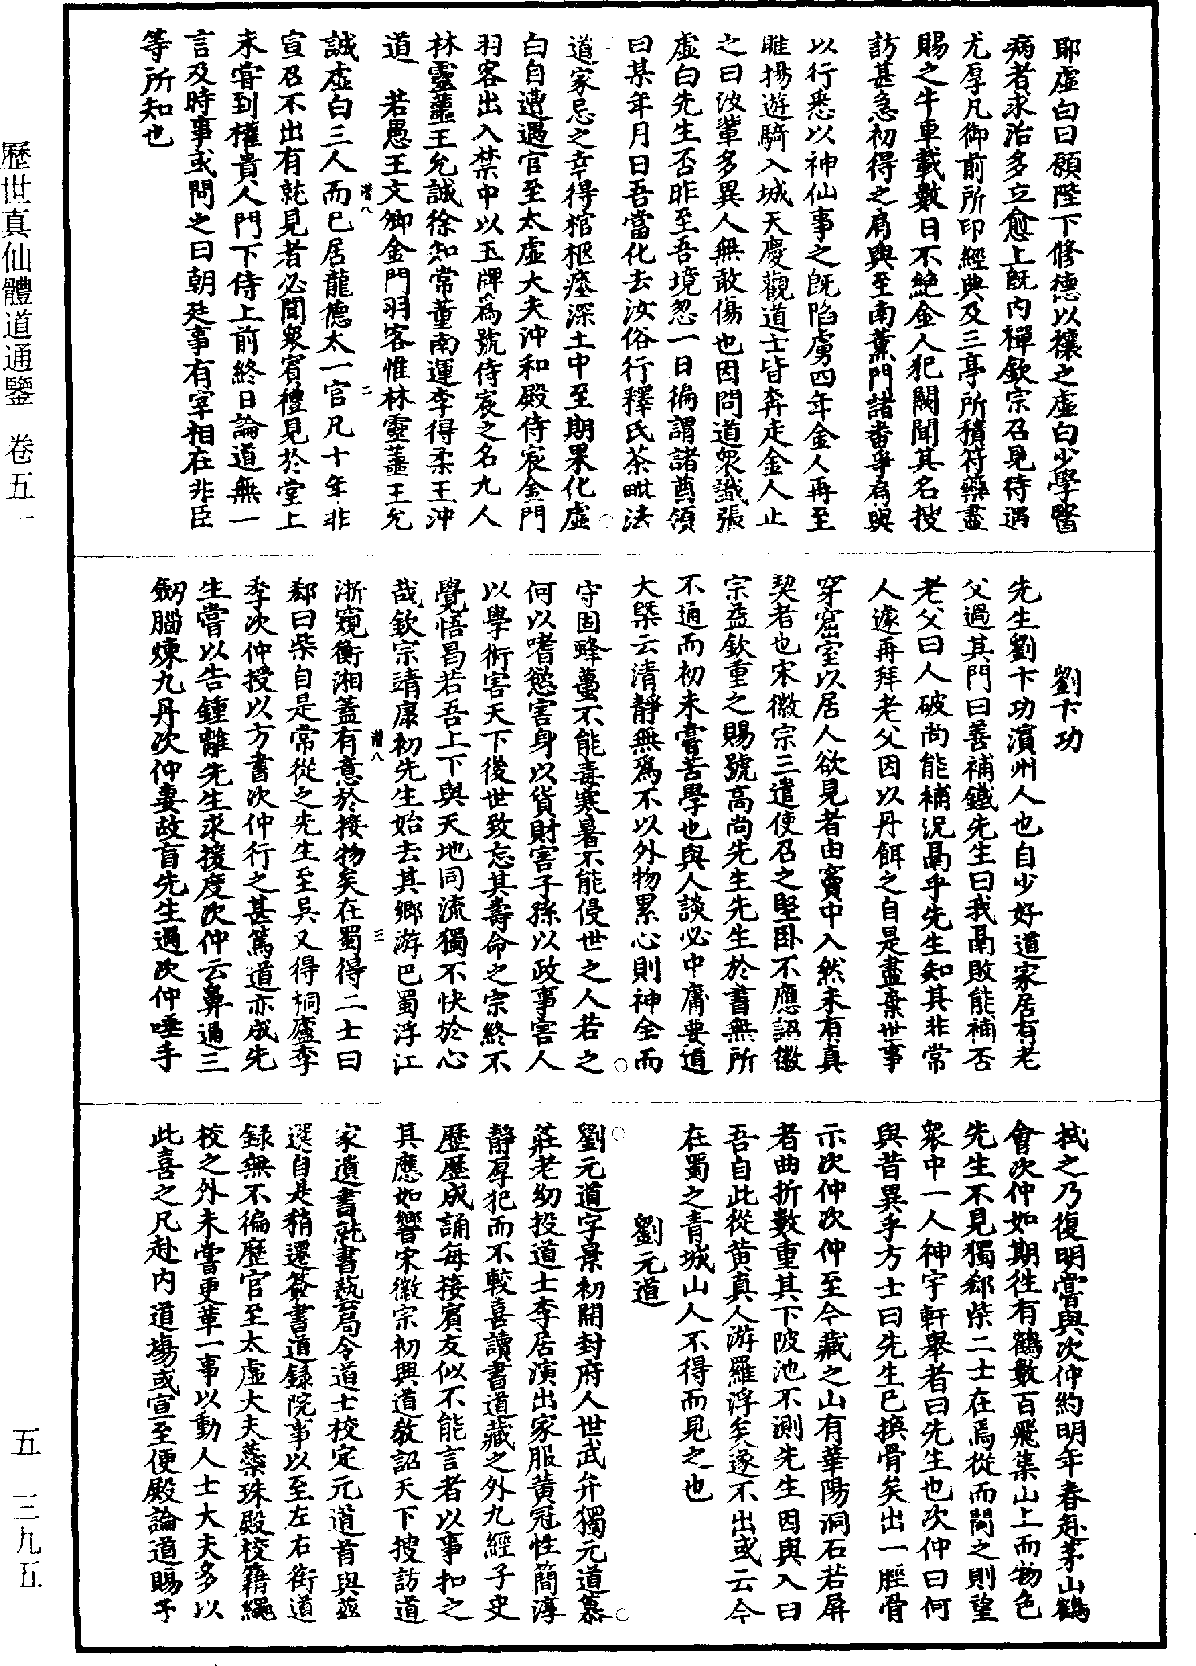 耶虛白曰願陛下修德以禳之虛白少學醫
病者求治多立愈上既內禪欽宗召見待遇
尤厚凡御前所印經典及三亭所積符藥盡
賜之牛車載數日不絕金人犯闕聞其名搜
訪甚急初得之肩輿至南薰門諸酋爭肩輿
以行悉以神仙事之既陷虜四年金人再至
睢揚遊騎入城天慶觀道士皆奔走金人止
之曰汝輩多異人無敢傷也因問道衆識張
虛白先生否昨至吾境忽一日徧謂諸酋領
曰某年月日吾當化去汝俗行釋氏茶毗法
道家忌之幸得棺柩瘞深土中至期果化虛
白自遭遇官至太虛大夫沖和殿侍宸金門
羽客出入禁中以玉牌爲號侍宸之名九人
林靈蘁王允誠徐知常董南運李得柔王沖
道　若愚王文卿金門羽客惟林靈蘁王允
誠虛白三人而已居龍德太一宮凡十年非
宣召不出有就見者必聞衆賓禮見於堂上
未嘗到權貴人門下侍上前終日論道無一
言及時事或問之曰朝廷事有宰相在非臣
等所知也
劉卞功
先生劉卞功濱州人也自少好道家居有老
父過其門曰善補鐵先生曰我鬲敗能補否
老父曰人破尚能補況鬲乎先生知其非常
人遂再拜老父因以丹餌之自是盡棄世事
穿窟室以居人欲見者由竇中入然未有真
契者也宋徽宗三遣使召之堅臥不應詔徽
宗益欽重之賜號高尚先生先生於書無所
不通而初未嘗苦學也與人談必中庸要道
大槩云清靜無爲不以外物累心則神全而
守固蜂蠆不能毒寒暑不能侵世之人若之
何以嗜慾害身以貨財害子孫以政事害人
以學術害天下後世致忘其壽命之宗終不
覺悟曷若吾上下與天地同流獨不快於心
哉欽宗靖康初先生始去其鄉游巴蜀浮江
浙窺衡湘蓋有意於接物矣在蜀得二士曰
郄曰柴自是常從之先生至吳又得桐廬李
季次仲授以方書次仲行之甚篤道亦成先
生嘗以告鍾離先生求援度次仲云鼻通三
劒腦煉九丹次仲妻故盲先生過次仲唾手
拭之乃復明嘗與次仲約明年春赴茅山鶴
會次仲如期往有鶴數百飛集山上而物色
先生不見獨郄柴二士在焉從而問之則望
衆中一人神宇軒舉者曰先生也次仲曰何
與昔異乎方士曰先生已換骨矣出一脛骨
示次仲次仲至今藏之山有華陽洞石若屏
者曲折數重其下陂池不測先生因與入曰
吾自此從黃真人游羅浮矣遂不出或云今
在蜀之青城山人不得而見之也
劉元道
劉元道字景初開封府人世武弁獨元道慕
莊老幼投道士李居演出家服黃冠性簡淳
靜厚犯而不較喜讀書道藏之外九經子史
歷歷成誦每接賓友似不能言者以事扣之
其應如響宋徽宗初興道敎詔天下搜訪道
家遺書就書藝局令道士校定元道首與茲
選自是稍遷簽書道錄院事以至左右街道
錄無不徧歷官至太虛大夫蘂珠殿校籍繩
校之外未嘗更輩一事以動人士大夫多以
此喜之凡赴內道場或宣至便殿論道賜予
歷世真仙體道通鑒　卷五一
五　三九五